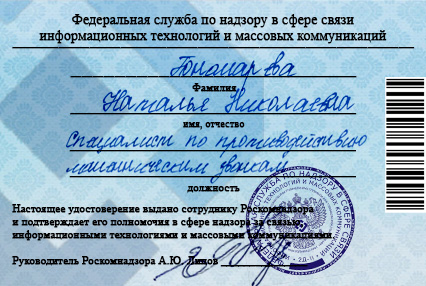 Федеральная служба по надзору в сфере связи
информационных технологий и массовых коммуникаций
Пономарева
Фамилия
Наталья Николаевна
имя, отчество
Специалист по противодействию
мошенническим звонкам
должность
Настоящее удостоверение выдано сотруднику Роскомнадзора
и подтверждает его полномочия в сфере надзора за связью,
информационными технологиями и массовыми коммуникациями
Руководитель Роскомнадзора А.Ю. Липов